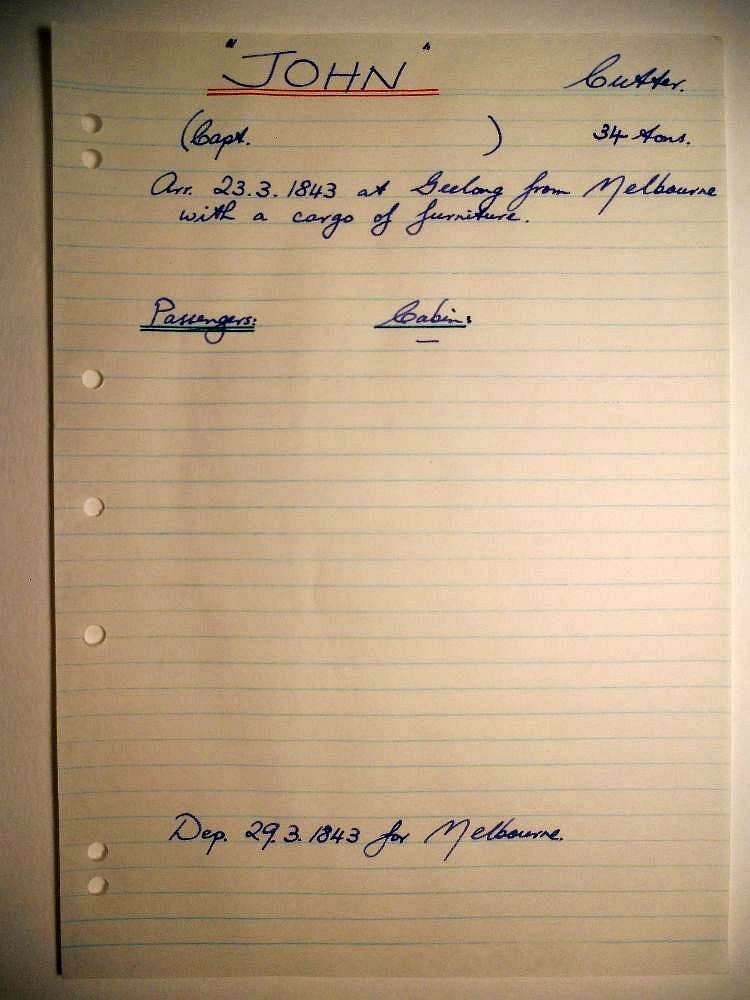 "JOHN" Cutter.
(Capt. ) 34 tons.
Arr. 23.3.1843 at Geelong from Melbourne
with a cargo of furniture.
Passengers: Cabin:
—
Dep. 29.3.1843 for Melbourne.